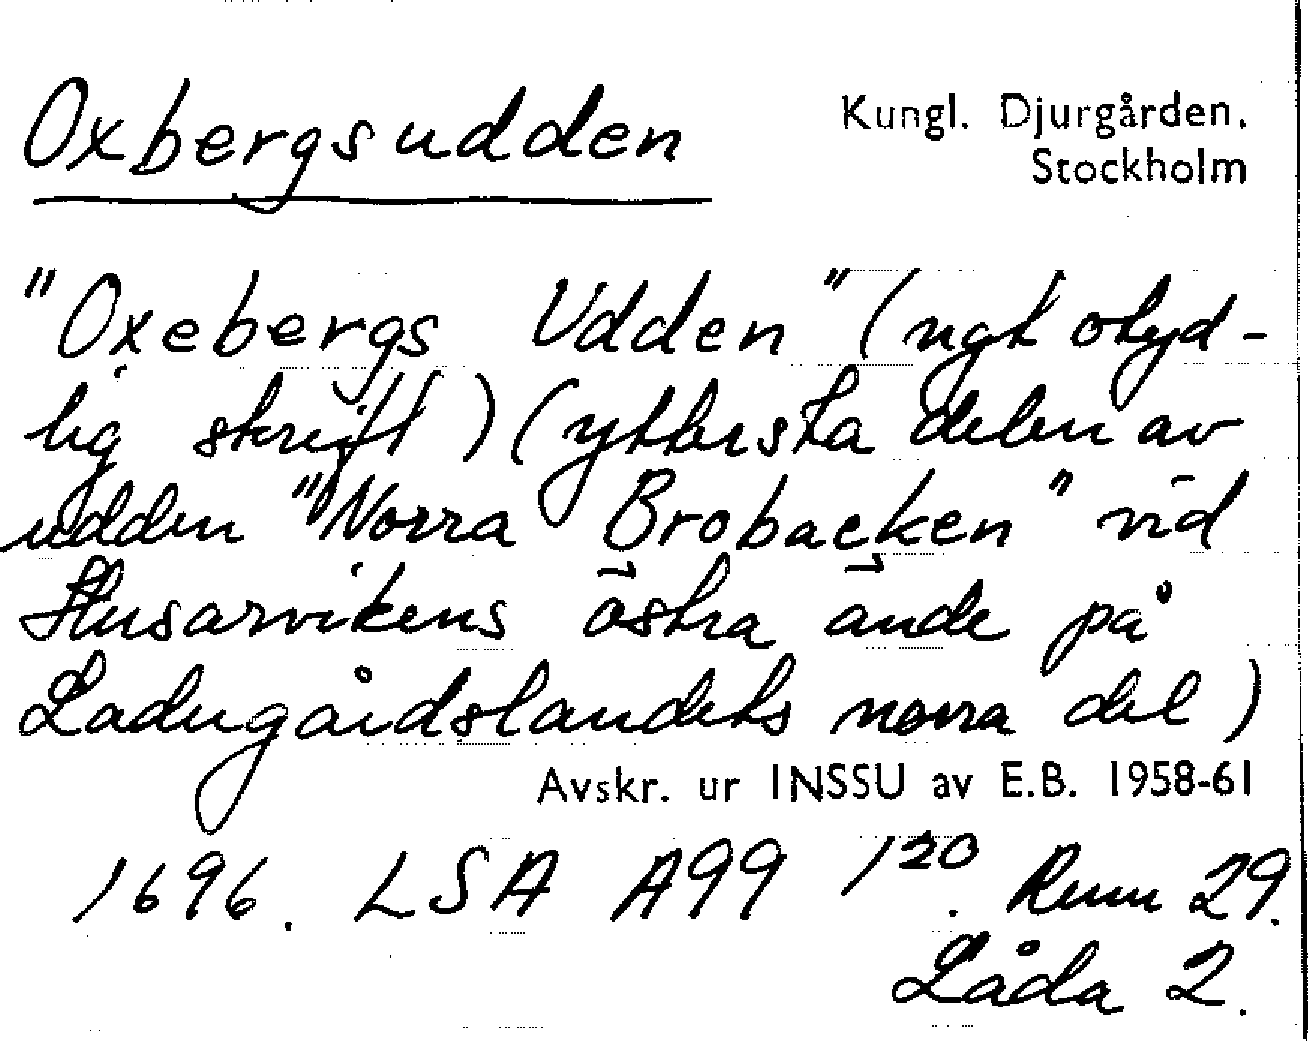 Oxbergsudden
Kungl. Djurgården.
Stockholm
"Oxebergs Udden" (ngt otyd-
lig skrift) (yttersta delen av
udden "Norra Brobacken" vid
Husarvikens östra ände på
Ladugårdslandets norra del)
Avskr. ur INSSU av E.B. 1958-61
1696. LSA A99 120. Rum 29.
Låda 2.